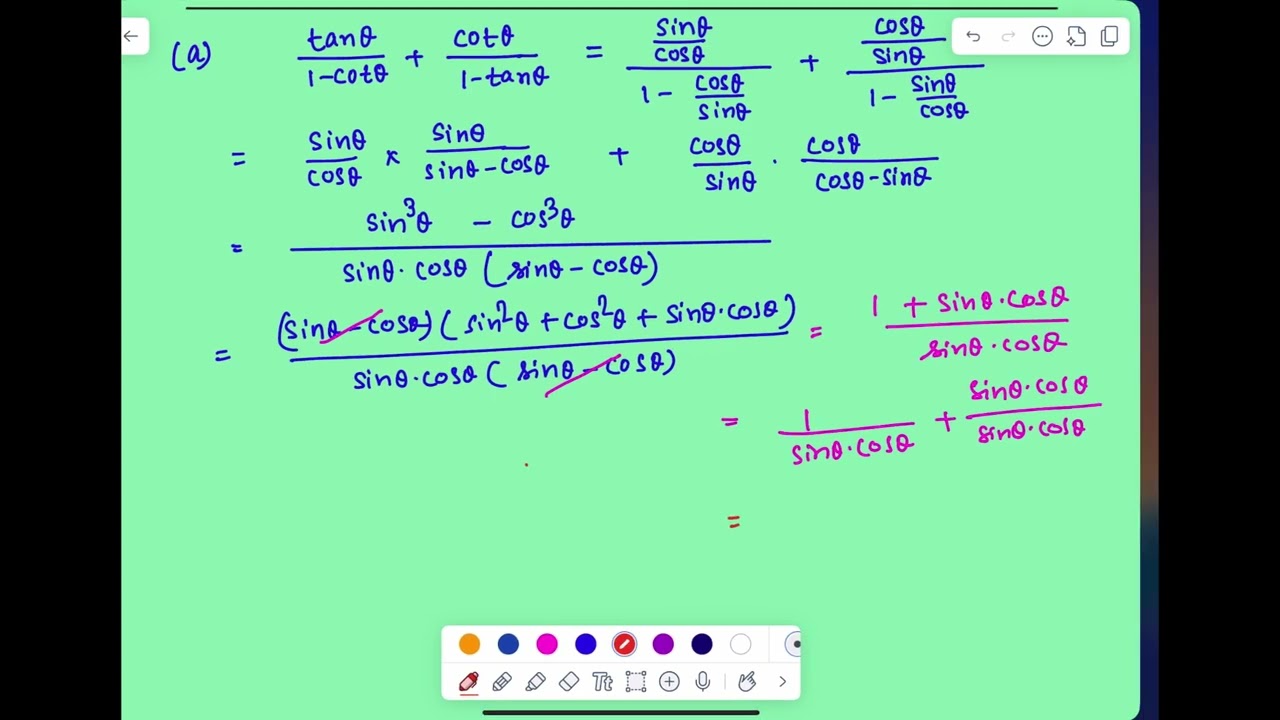 (a) tanθ/(1-cotθ) + cotθ/(1-tanθ) = (sinθ/cosθ)/(1 - cosθ/sinθ) + (cosθ/sinθ)/(1 - sinθ/cosθ)
= sinθ/cosθ × sinθ/(sinθ-cosθ) + cosθ/sinθ · cosθ/(cosθ-sinθ)
= (sin³θ - cos³θ)/(sinθ·cosθ (sinθ-cosθ))
= (sinθ-cosθ)(sin²θ+cos²θ+sinθ·cosθ)/(sinθ·cosθ(sinθ-cosθ)) = (1+sinθ·cosθ)/(sinθ·cosθ)
= 1/(sinθ·cosθ) + (sinθ·cosθ)/(sinθ·cosθ)
=
Tt